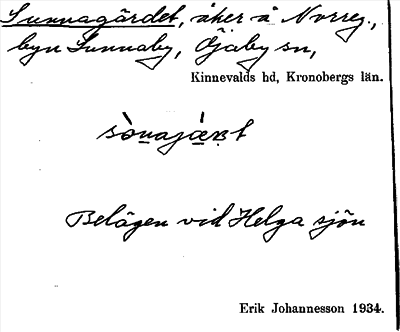 Sunnagärdet, åker å Norreg.,
byn Sunnaby, Öjaby sn,
Kinnevalds hd, Kronobergs län.
sònajæ̀ṇt
Belägen vid Helga sjön
Erik Johannesson 1934.